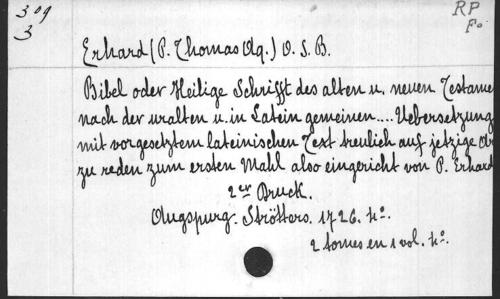 309
3
RP
Fo
Erhard (P. Thomas Aq.) O. S. B.
Bibel oder Heilige Schrifft des alten u. neuen Testame
nach der uralten u. in Latein gemeinen.... Uebersetzung
mit vorgesetztem lateinischen Text treulich auf jetzige Ar
zu reden zum ersten Mahl also eingericht von P. Erhard
2er Druck.
Augspurg. Strötters. 1726. 4o.
2 tomes en 1 vol. 4o.